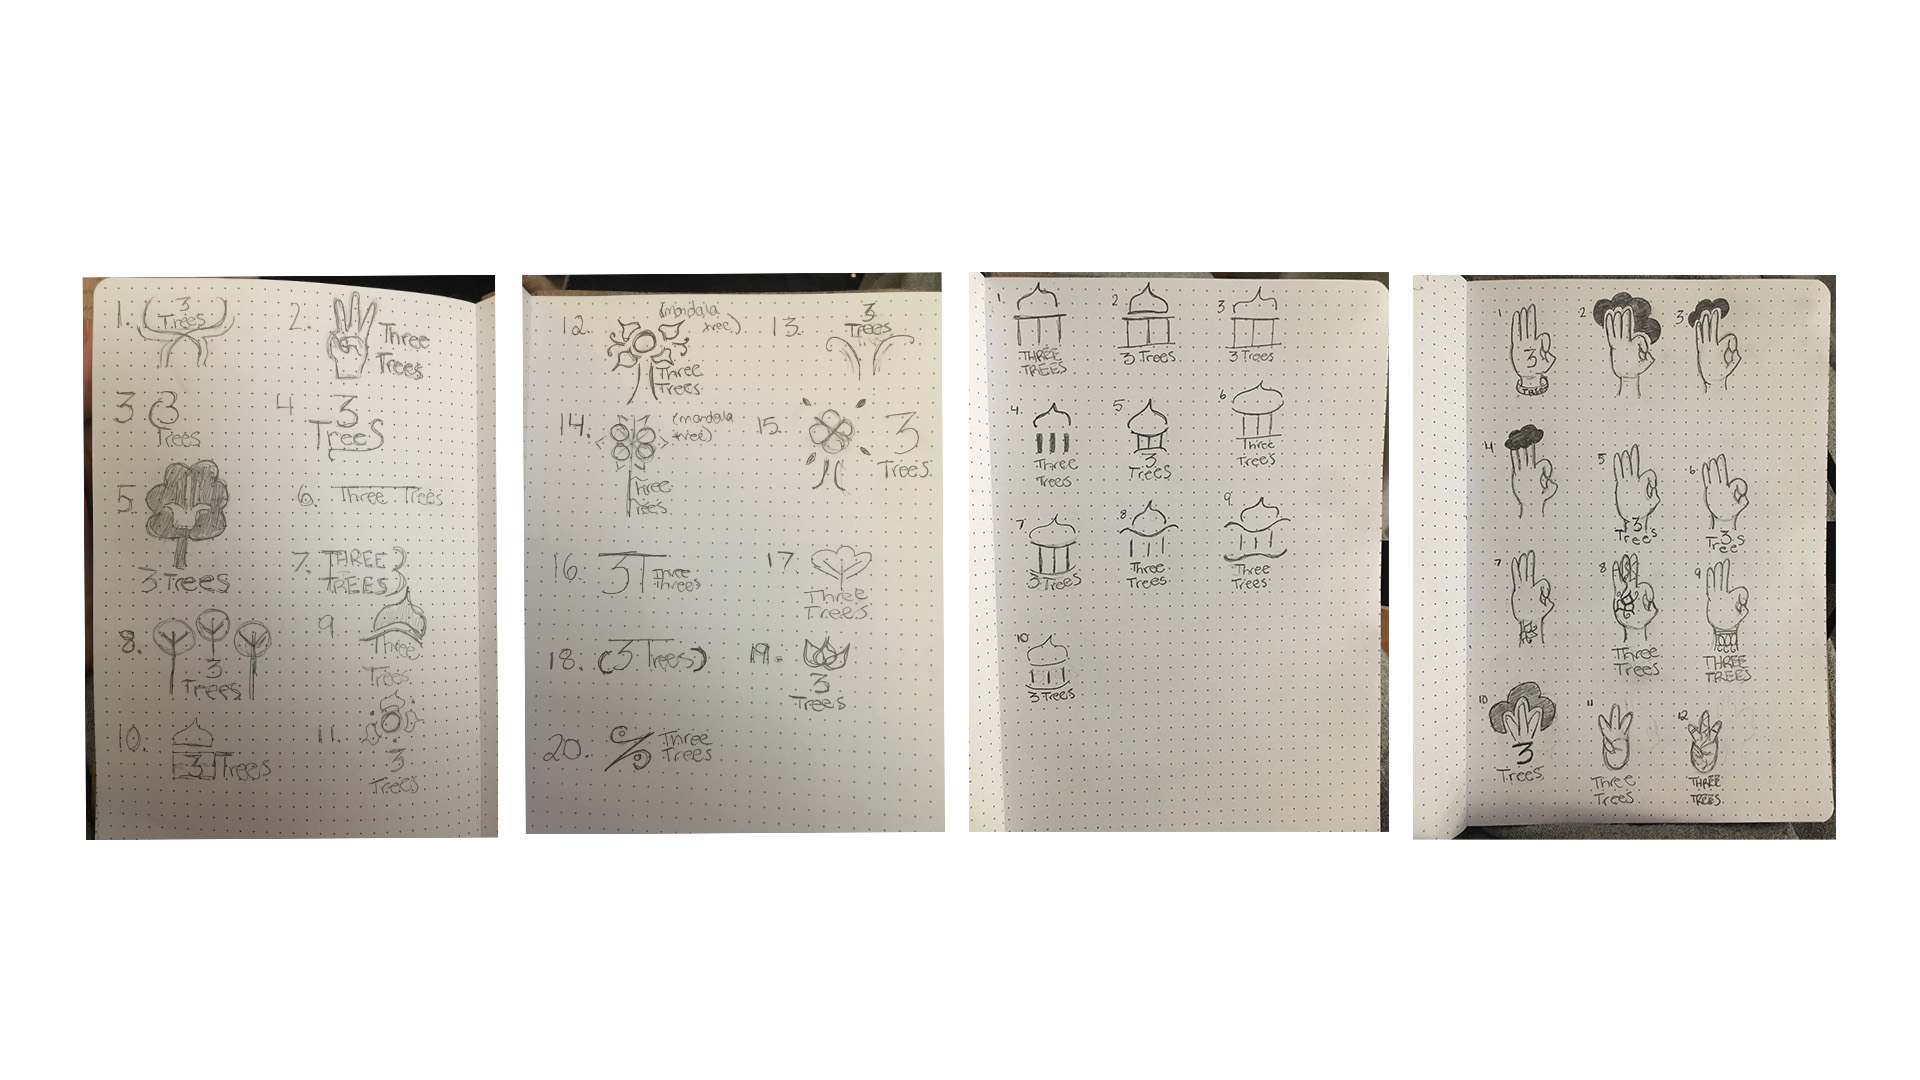 1.
3
Trees
2.
Three
Trees
3
3
Trees
4
3
Trees
5.
3 Trees
6.
Three Trees
7.
THREE
TREES
8.
3
Trees
9.
Three
Trees
10.
3 Trees
11.
3
Trees
12.
(mandala
tree)
Three
Trees
13.
3
Trees
14.
(mandala
tree)
Three
Trees
15.
3
Trees
16.
3T
Three
Threes
17.
Three
Trees
18.
(3 Trees)
19.
3
Trees
20.
Three
Trees
1.
THREE
TREES
2
3 Trees
3
3 Trees
4.
Three
Trees
5
3
Trees
6
Three
Trees
7
3 Trees
8.
Three
Trees
9
Three
Trees
10
3 Trees
1
3
2
3
4
5
3
Trees
6
3
Trees
7
8
Three
Trees
9
THREE
TREES
10
3
Trees
11
Three
Trees
12
THREE
TREES